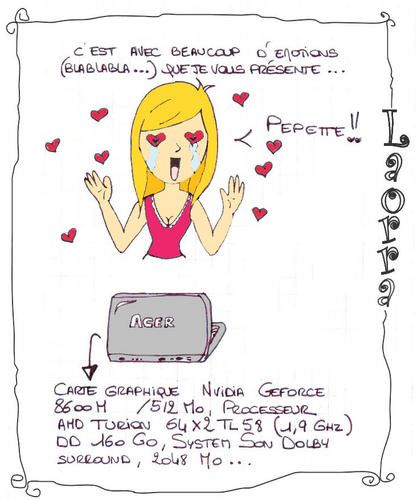 C'EST AVEC BEAUCOUP D'EMOTIONS
(BLABLABLA...) QUE JE VOUS PRÉSENTE...
PEPETTE!!
Laorra
ACER
CARTE GRAPHIQUE NVIDIA GEFORCE
8600M /512 MO, PROCESSEUR
AMD TURION 64X2 TL58 (1,9 GHZ)
DD 160 GO, SYSTEM SON DOLBY
SURROUND, 2048 MO...